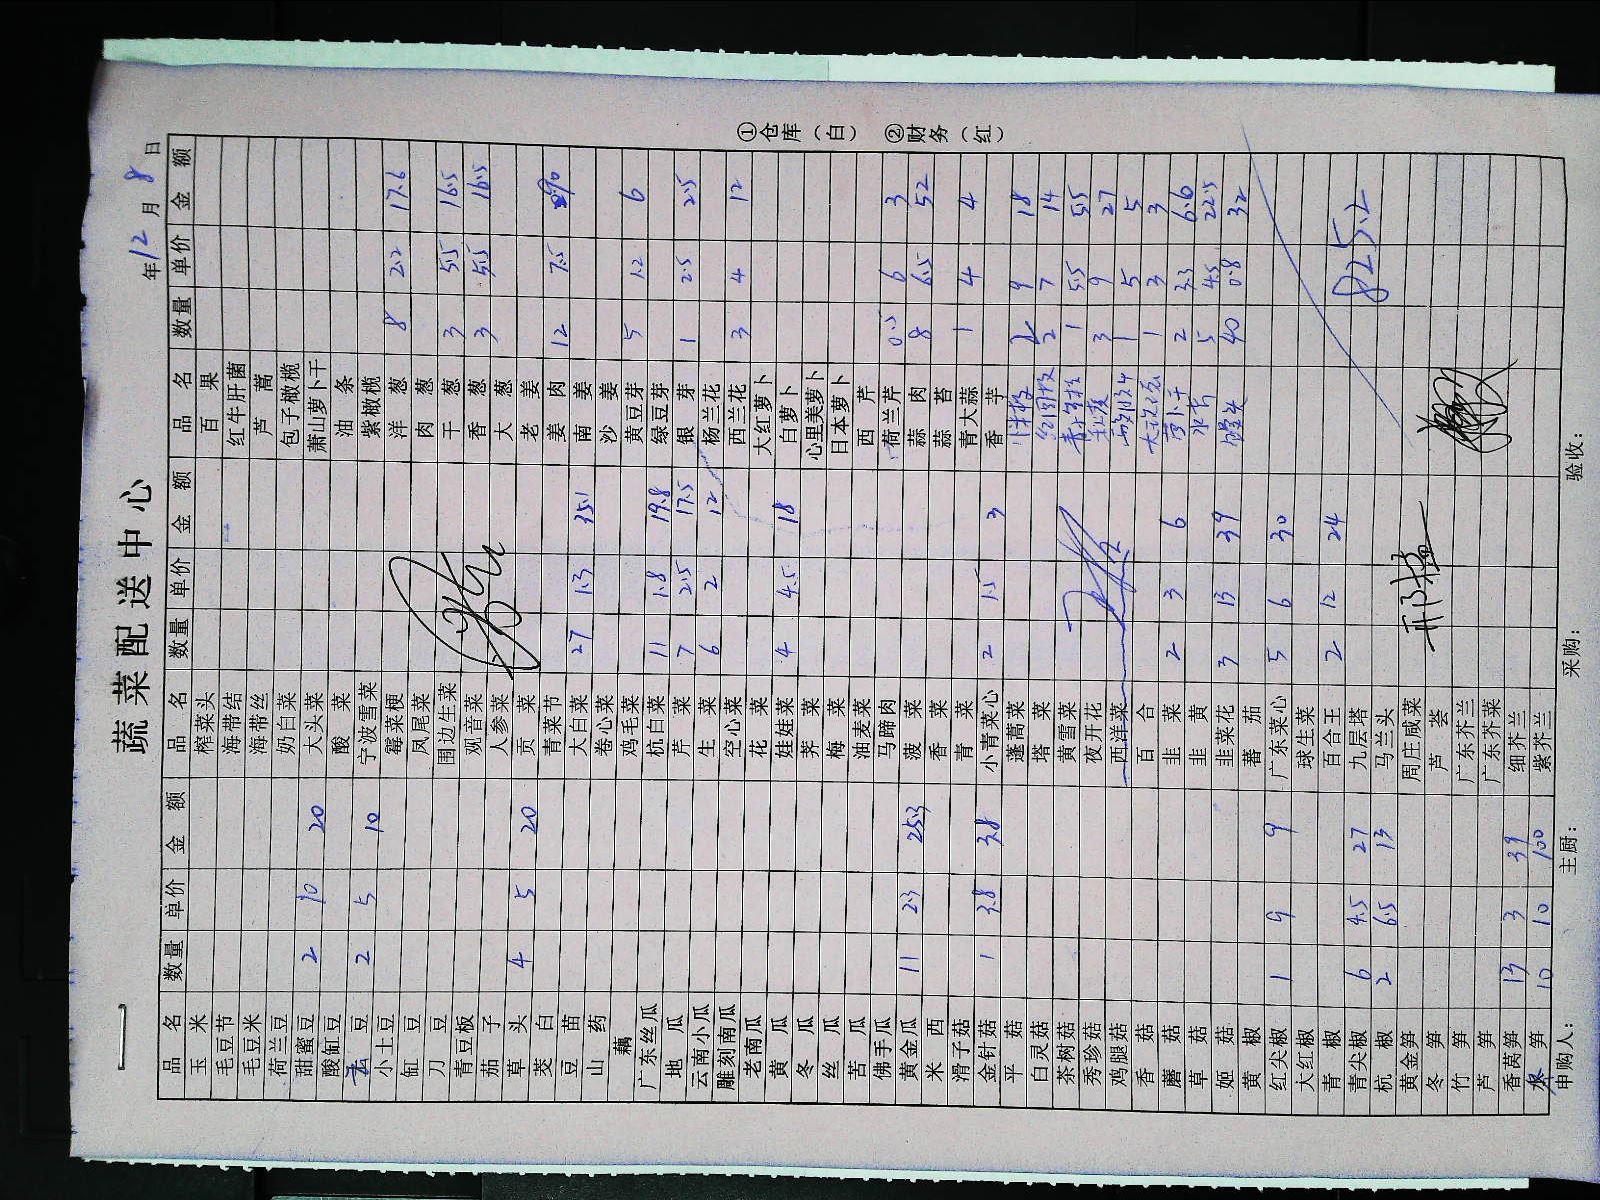 蔬菜配送中心
年12月8日
品名 数量 单价 金额 品名 数量 单价 金额 品名 数量 单价 金额
玉米 榨菜头 百果
毛豆节 海带结 红牛肝菌
毛豆米 海带丝 芦蒿
荷兰豆 奶白菜 包子橄榄
甜蜜豆 2 10 20 大头菜 萧山萝卜干
酸缸豆 酸菜 油条
豆 2 5 10 宁波雪菜 紫橄榄
小土豆 霉菜梗 洋葱 8 2.2 17.6
缸豆 凤尾菜 肉葱
刀豆 围边生菜 干葱 3 5.5 16.5
青豆板 观音菜 香葱 3 5.5 16.5
茄子 人参菜 大葱
草头 4 5 20 贡菜 老姜
茭白 青菜节 姜肉 12 7.5 90
豆苗 大白菜 27 1.3 35.1 南姜
山药 卷心菜 沙姜
藕 鸡毛菜 黄豆芽 5 1.2 6
广东丝瓜 杭白菜 11 1.8 19.8 绿豆芽
地瓜 芹菜 7 2.5 17.5 银芽 1 2.5 2.5
云南小瓜 生菜 6 2 12 杨兰花
雕刻南瓜 空心菜 西兰花 3 4 12
老南瓜 花菜 大红萝卜
黄瓜 娃娃菜 4 4.5 18 白萝卜
冬瓜 荠菜 心里美萝卜
丝瓜 梅菜 日本萝卜
苦瓜 油麦菜 西芹
佛手瓜 马蹄肉 荷兰芹 0.5 6 3
黄金瓜 11 2.3 25.3 菠菜 蒜肉 8 6.5 52
米西 香菜 蒜苔
滑子菇 青菜 青大蒜 1 4 4
金针菇 1 3.8 3.8 小青菜心 2 1.5 3 香芋
平菇 蓬蒿菜 2 9 18
白灵菇 塔菜 2 7 14
茶树菇 黄雪菜 1 5.5 5.5
秀珍菇 夜开花 3 9 27
鸡腿菇 西洋菜 1 5 5
香菇 百合 1 3 3
蘑菇 韭菜 2 3 6 萝卜干 2 3.3 6.6
草菇 韭黄 5 4.5 22.5
姬菇 韭菜花 3 13 39 40 0.8 32
黄椒 蕃茄
红尖椒 1 9 9 广东菜心 5 6 30
大红椒 球生菜
青椒 百合王 2 12 24
青尖椒 6 4.5 27 九层塔 825.2
杭椒 2 6.5 13 马兰头
黄金笋 周庄咸菜
冬笋 芦荟
竹笋 广东芥兰
芦笋 广东芥菜
香莴笋 13 3 39 细芥兰
笋 10 10 100 紫芥兰
申购人： 主厨： 采购： 验收：
①仓库（白） ②财务（红）